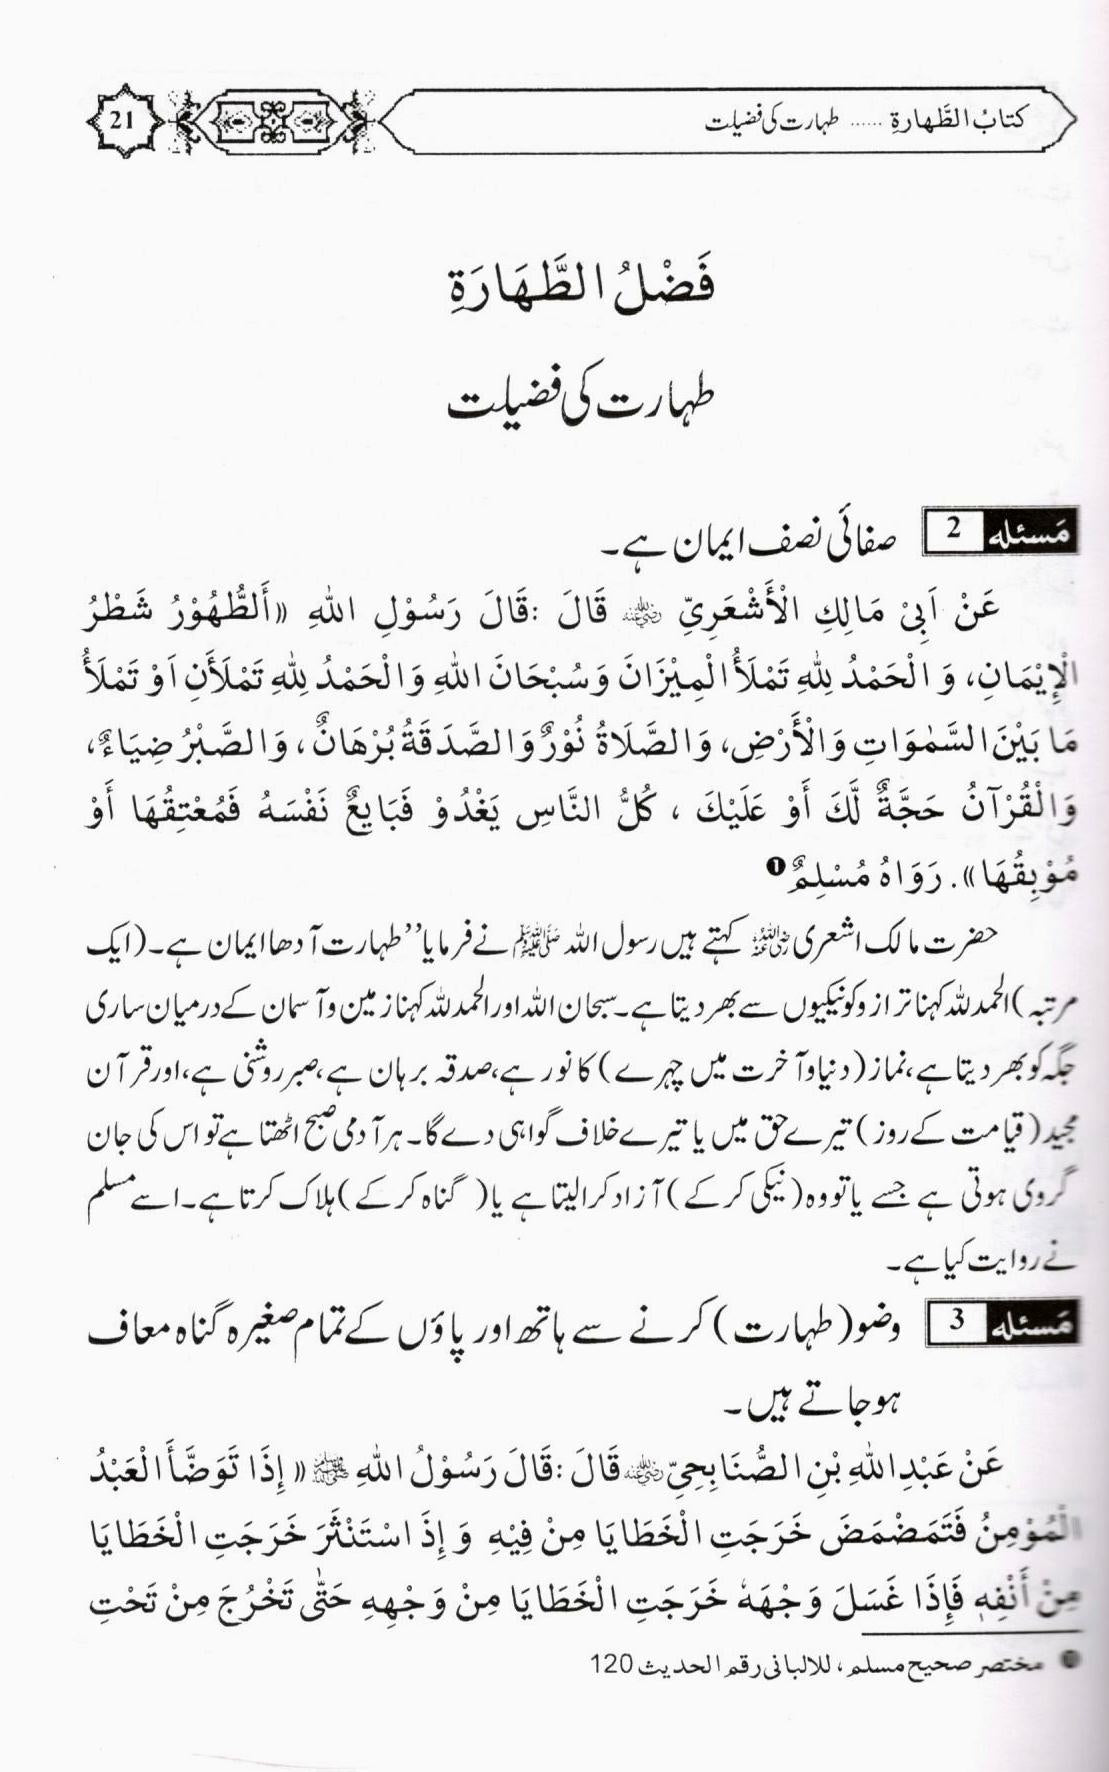 كتابُ الطَّهارةِ ...... طہارت کی فضیلت
21
فَضْلُ الطَّهَارَةِ
طہارت کی فضیلت
مَسئله 2 صفائی نصف ایمان ہے۔
عَنْ اَبِيْ مَالِكِ الْأَشْعَرِيِّ رضي الله عنه قَالَ :قَالَ رَسُوْلِ اللهِ ((أَلطُّهُوْرُ شَطْرُ
الْإِيْمَانِ، وَ الْحَمْدُ لِلّٰهِ تَمْلَأُ الْمِيْزَانَ وَسُبْحَانَ اللهِ وَالْحَمْدُ لِلّٰهِ تَمْلَأَنِ اَوْ تَمْلَأُ
مَا بَيْنَ السَّمٰوَاتِ وَالْأَرْضِ، وَالصَّلَاةُ نُوْرٌ وَالصَّدَقَةُ بُرْهَانٌ، وَالصَّبْرُ ضِيَاءٌ،
وَالْقُرْآنُ حَجَّةٌ لَّكَ أَوْ عَلَيْكَ ، كُلُّ النَّاسِ يَغْدُوْ فَبَايِعٌ نَفْسَهُ فَمُعْتِقُهَا أَوْ
مُوْبِقُهَا)). رَوَاهُ مُسْلِمٌ ❶
حضرت مالک اشعری رضی اللہ عنہ کہتے ہیں رسول اللہ ﷺ نے فرمایا ’’طہارت آدھا ایمان ہے۔ (ایک
مرتبہ) الحمدللہ کہنا ترازو کو نیکیوں سے بھر دیتا ہے۔ سبحان اللہ اور الحمدللہ کہنا زمین و آسمان کے درمیان ساری
جگہ کو بھر دیتا ہے، نماز (دنیا و آخرت میں چہرے) کا نور ہے، صدقہ برہان ہے، صبر روشنی ہے، اور قرآن
مجید (قیامت کے روز) تیرے حق میں یا تیرے خلاف گواہی دے گا۔ ہر آدمی صبح اٹھتا ہے تو اس کی جان
گروی ہوتی ہے جسے یا تو وہ (نیکی کر کے) آزاد کرا لیتا ہے یا (گناہ کر کے) ہلاک کرتا ہے۔ اسے مسلم
نے روایت کیا ہے۔
مَسئله 3 وضو (طہارت) کرنے سے ہاتھ اور پاؤں کے تمام صغیرہ گناہ معاف
ہو جاتے ہیں۔
عَنْ عَبْدِ اللهِ بْنِ الصُّنَابِحِيِّ رضي الله عنه قَالَ :قَالَ رَسُوْلُ اللهِ ﷺ (( إِذَا تَوَضَّأَ الْعَبْدُ
الْمُوْمِنُ فَتَمَضْمَضَ خَرَجَتِ الْخَطَايَا مِنْ فِيْهِ وَ إِذَ اسْتَنْثَرَ خَرَجَتِ الْخَطَايَا
مِنْ أَنْفِهٖ فَإِذَا غَسَلَ وَجْهَهٗ خَرَجَتِ الْخَطَايَا مِنْ وَجْهِهِ حَتّٰى تَخْرُجَ مِنْ تَحْتِ
❶ مختصر صحيح مسلم ، للالبانى رقم الحديث 120